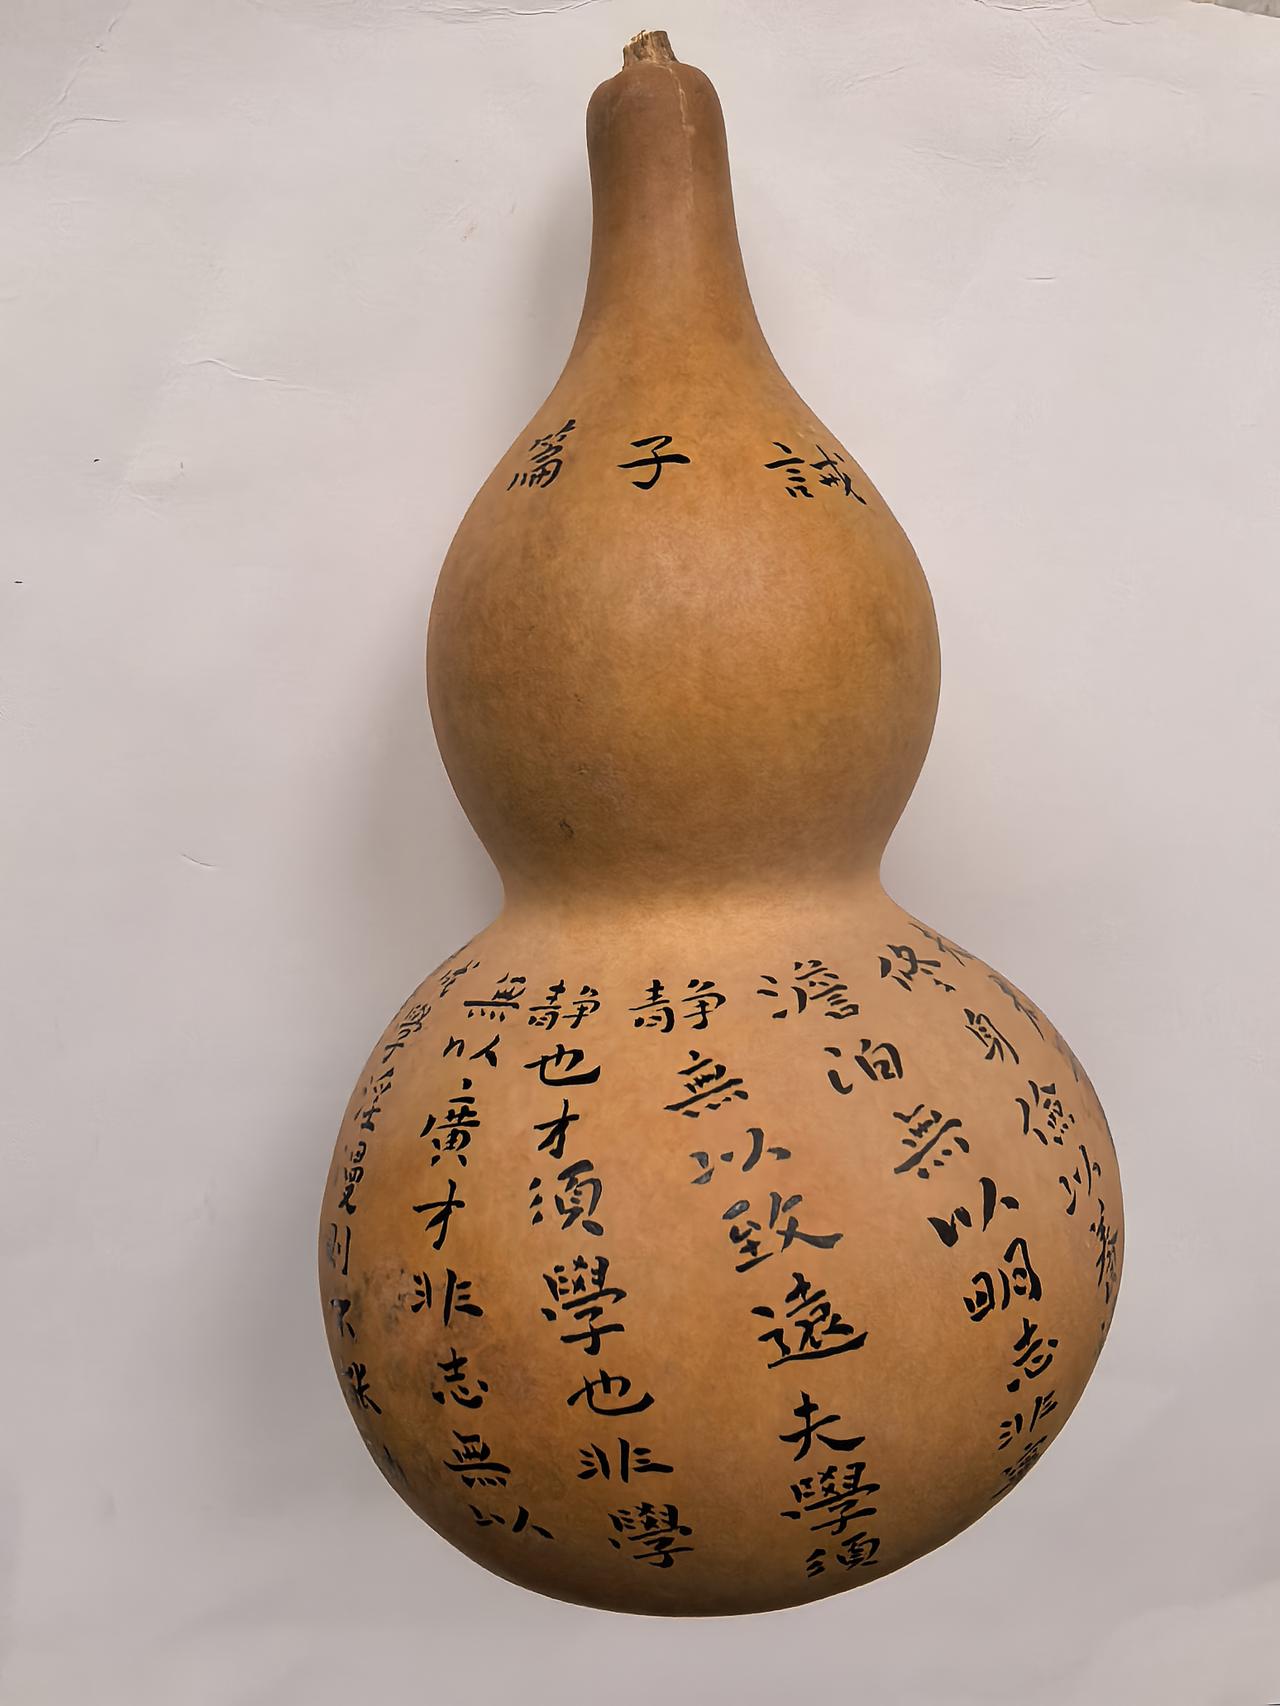 誡子篇
修身儉以養
澹泊無以明志非寧
静無以致遠夫學須
静也才須學也非學
無以廣才非志無以
成學淫慢則不能